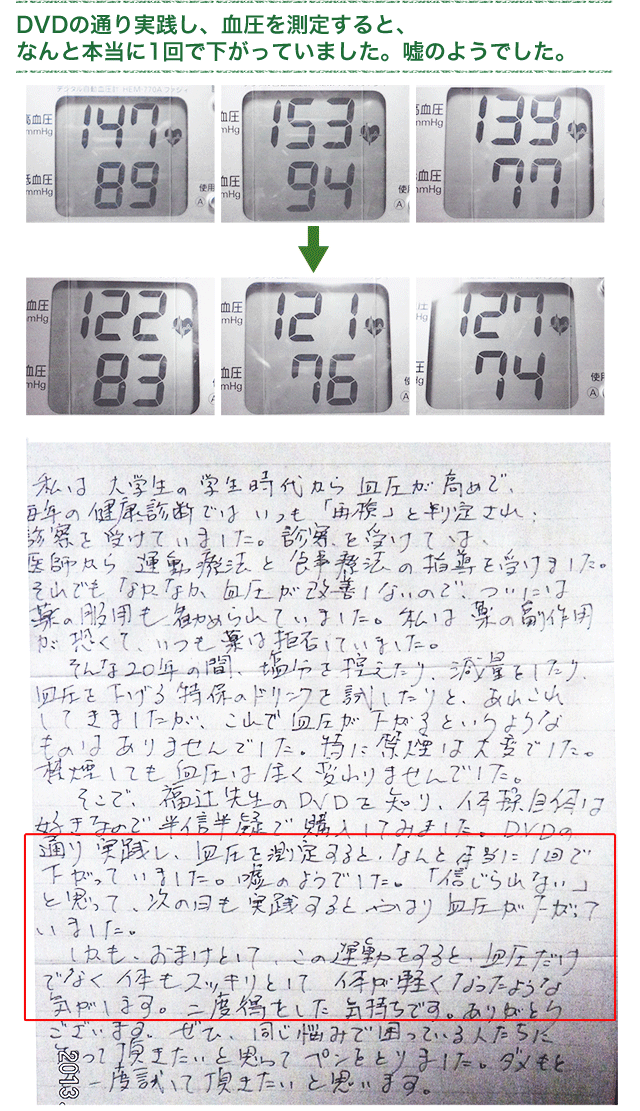 DVDの通り実践し、血圧を測定すると、
なんと本当に1回で下がっていました。嘘のようでした。
デジタル自動血圧計 HEM-770A ファジィ
高血圧 147 153 139
mmHg
低血圧 89 94 77
mmHg
使用
A
血圧 122 121 127
mmHg
血圧 83 76 74
mmHg
使用
A
私は大学生の学生時代から血圧が高めで、
毎年の健康診断ではいつも「再検」と判定され、
診察を受けていました。診察を受けては、
医師から運動療法と食事療法の指導を受けました。
それでもなかなか血圧が改善しないので、ついには
薬の服用も勧められていました。私は薬の副作用
が恐くて、いつも薬は拒否していました。
そんな20年の間、塩分を控えたり、減量をしたり、
血圧を下げる特保のドリンクを試したりと、あれこれ
してきましたが、これで血圧が下がるというような
ものはありませんでした。特に禁煙は大変でした。
禁煙しても血圧は全く変わりませんでした。
そこで、福辻先生のDVDを知り、体操自体は
好きなので半信半疑で購入してみました。DVDの
通り実践し、血圧を測定すると、なんと本当に1回で
下がっていました。嘘のようでした。「信じられない」
と思って、次の日も実践するとやはり血圧が下がって
いました。
しかも、おまけとして、この運動をすると、血圧だけ
でなく体もスッキリとして体が軽くなったような
気がします。二度得をした気持ちです。ありがとう
ございます。ぜひ、同じ悩みで困っている人たちに
知って頂きたいと思ってペンをとりました。ダメもと
で一度試して頂きたいと思います。
2013.